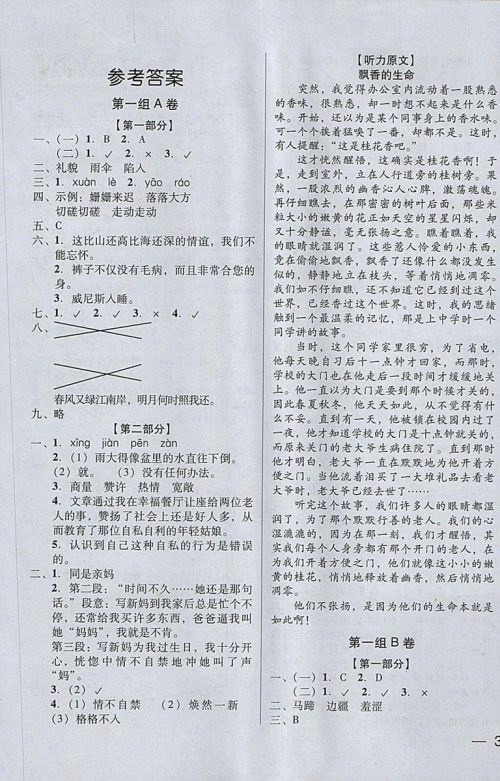 参考答案
第一组A卷
【第一部分】
一、(一) 1. B 2. A
(二) 1. ✓ 2. × 3. ✓
二、礼貌 雨伞 陷入
三、1. xuàn lè 2. yǎo ráo
四、示例：姗姗来迟 落落大方
切磋切磋 走动走动
五、C
六、1. 这比山还高比海还深的情谊，我们不
能忘怀。
2. 裤子不仅没有毛病，而且非常合您的
身。
3. 威尼斯入睡。
七、1. ✓ 2. ✓ 3. × 4. ✓
八、
春风又绿江南岸，明月何时照我还。
九、略
【第二部分】
一、1. xīng jiàn pēn zàn
2. (1) 雨大得像盆里的水直往下倒。
(2) 就。 (3) 没有任何办法。
3. 商量 赞许 热情 宽敞
4. 文章通过我在幸福餐厅让座给两位老
人的事情，赞扬了社会上还是好人多，从
而教育了那位自私自利的年轻姑娘。
5. 认识到自己这种自私的行为是错误
的。
二、1. 同是亲妈
2. 第二段：“时间不久……她还是那句
话。”段意：写新妈到我家后总是忙个不
停，还常给我买许多东西，爸爸逼我叫
她“妈妈”，我就是不肯。
第三段：写新妈为我过生日，我十分开
心，恍惚中情不自禁地冲她叫了声
“妈”。
3. (2) ✓
4. (1) 情不自禁 (2) 焕然一新
(3) 格格不入
【听力原文】
飘香的生命
突然，我觉得办公室内流动着一股熟悉
的香味，很熟悉，却一时想不起来是什么香
味。开始，还以为是某个同事身上的香水味。
可一个个挨着猛嗅了一下，却都不是。这时，
有人提醒：“这是桂花香吧。”
这才恍然醒悟，这确实是桂花香啊！于
是，走到室外，立在人行道旁的桂树旁。果
然，一股浓烈的幽香沁人心脾，激荡魂魄。
再仔细瞧去，在那密密的树叶中，那些米
粒大小的嫩黄的花正如天空的星星闪烁，却
又十分含蓄，毫无张扬之意。瞧着瞧着，我
的眼睛就湿润了。这些惹人怜爱的小东西，
竟在偷偷地飘香，飘香了还像什么都没发生
似的，静静地立在枝头，等着悄悄地凋零。
我们如不仔细瞧，还不知道它已经到过这个
世界，已经香过这个世界。这时，我的思绪
触到一个最温柔的记忆，那是上中学时一个
同学讲的故事。
当时，这个同学家里很穷，为了省电，
他每天晚自习后十一点钟才回家，而那时，
学校的大门也在他走后一段时间才缓缓地关
上。他一直以为大门是要到那个时候才关的，
因此春夏秋冬，他天天如此，从不觉得有什
么不妥。直到有一天，他被锁在校园内过了
一夜，他才知道学校的大门是十点钟就关的，
而原来关门的老大爷生病住院了。直到那时
他才明白，老大爷一直在默默地为他开着方
便之门。当他流着泪买了一大堆礼品去看老
大爷时，老大爷已经……
听完这个故事，我们许多人的眼睛都湿
润了，为了那个默默行善的老人。我们的心
湿漉漉的，因为今天我们才猛然醒悟，其
实我们每个人身旁都有不开门的老人，在
为我们开着方便之门，他们就像这小小的嫩
黄的桂花，悄悄地释放着幽香，然后悄悄地
凋零。
他们不张扬，是因为他们的生命本就是
如此啊！
第一组B卷
【第一部分】
一、(一) 1. C 2. D
(二) 1. ✓ 2. ✓ 3. ×
二、马蹄 边疆 羞涩
三、B
— 3